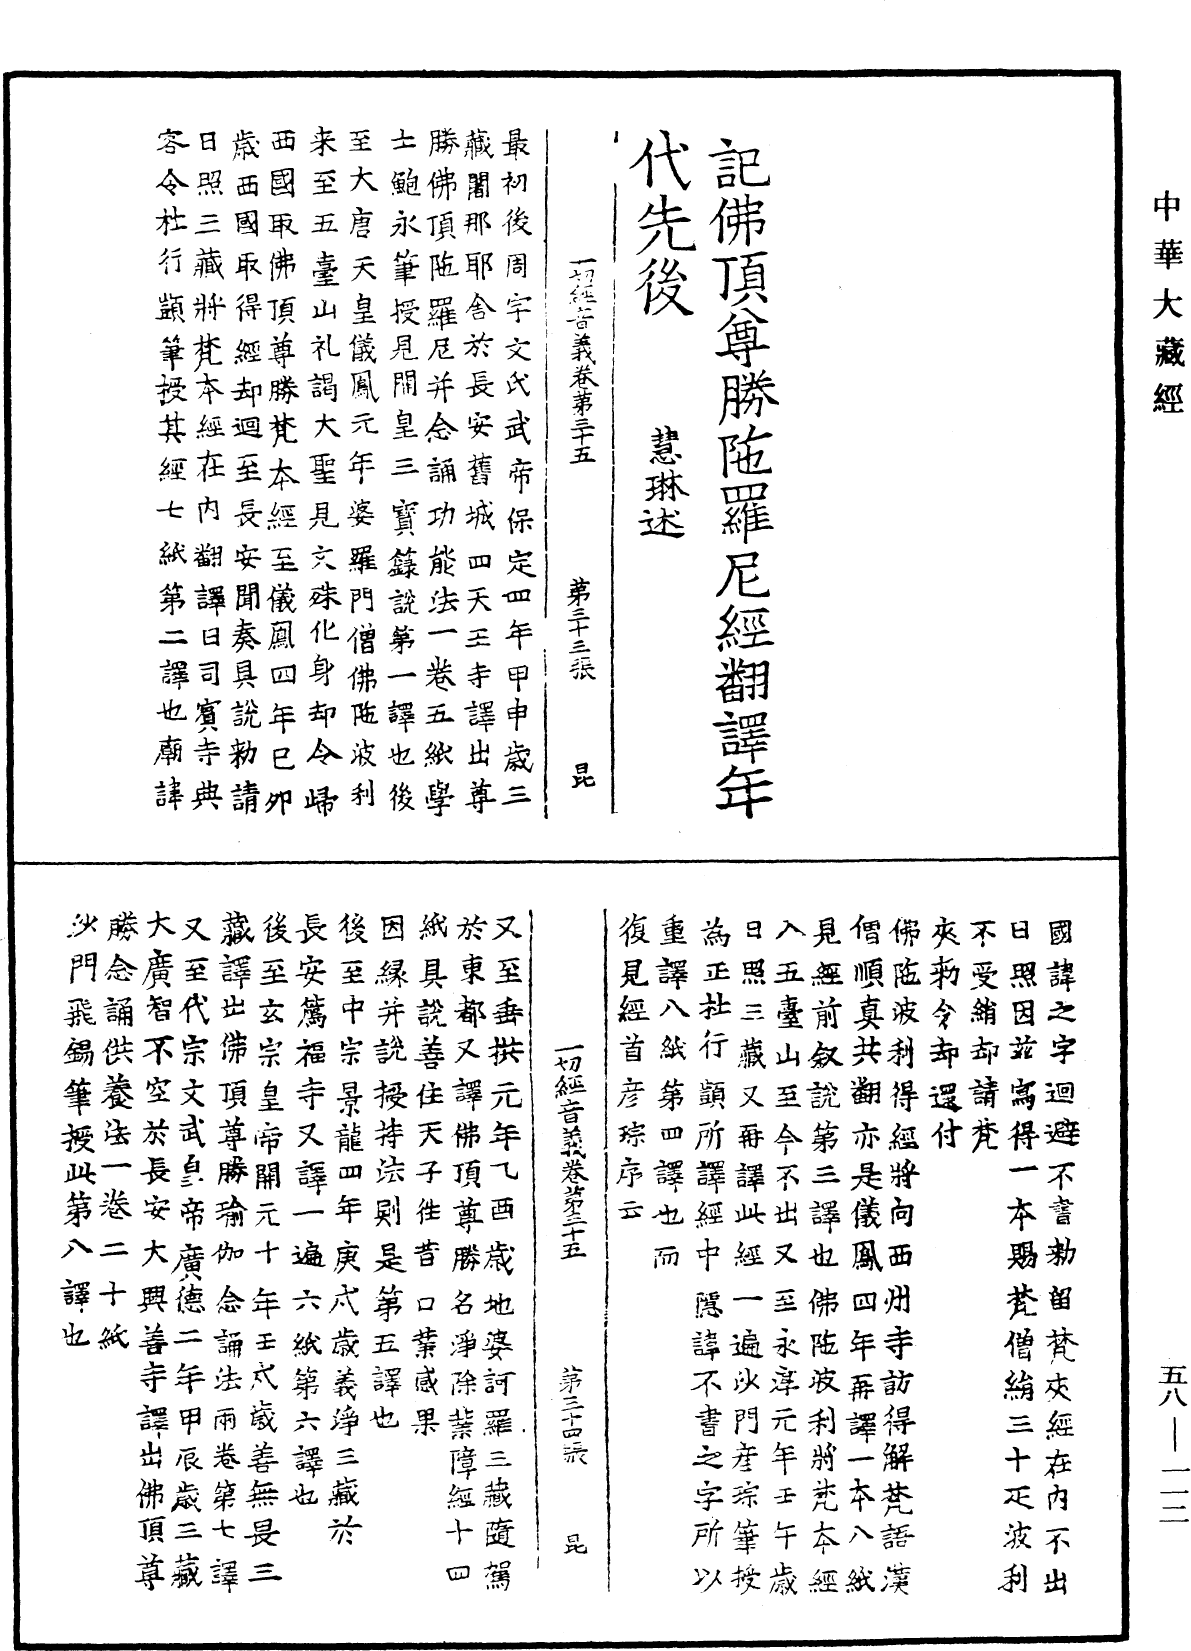 中華大藏經
記佛頂尊勝陁羅尼經翻譯年
代先後
慧琳述
一切經音義卷第三十五 第三十三張 昆
最初後周宇文氏武帝保定四年甲申歲三
藏闍那耶舍於長安舊城四天王寺譯出尊
勝佛頂陁羅尼并念誦功能法一卷五紙學
士鮑永筆授見開皇三寶錄說第一譯也後
至大唐天皇儀鳳元年婆羅門僧佛陁波利
来至五臺山礼謁大聖見文殊化身却令歸
西國取佛頂尊勝梵本經至儀鳳四年巳夘
歲西國取得經却迴至長安聞奏具說勑請
日照三藏將梵本經在内翻譯日司賓寺典
客令杜行顗筆授其經七紙第二譯也廟諱
國諱之字迴避不書勑留梵夾經在内不出
日照因兹寫得一本賜梵僧絹三十疋波利
不受絹却請梵
夾勑令却還付
佛陁波利得經將向西州寺訪得解梵語漢
僧順真共翻亦是儀鳳四年再譯一本八紙
見經前叙說第三譯也佛陁波利將梵本經
入五臺山至今不出又至永淳元年壬午歲
日照三藏又再譯此經一遍沙門彦琮筆授
為正杜行顗所譯經中隱諱不書之字所以
重譯八紙第四譯也而
復見經首彦琮序云
一切經音義卷第三十五 第三十四張 昆
又至垂拱元年乙酉歲地婆訶羅三藏隨駕
於東都又譯佛頂尊勝名淨除業障經十四
紙具說善住天子徃昔口業感果
因緣并說授持法則是第五譯也
後至中宗景龍四年庚戌歲義淨三藏於
長安薦福寺又譯一遍六紙第六譯也
後至玄宗皇帝開元十年壬戌歲善無畏三
藏譯出佛頂尊勝瑜伽念誦法兩卷第七譯
又至代宗文武皇帝廣德二年甲辰歲三藏
大廣智不空於長安大興善寺譯出佛頂尊
勝念誦供養法一卷二十紙
沙門飛錫筆授此第八譯也
五八—一一二